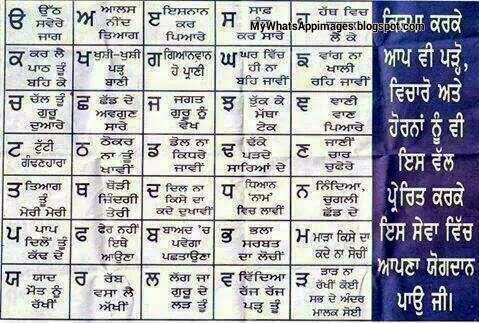 MyWhatsAppimages.blogspot.com
ੳ ਉੱਠ
ਸਵੇਰੇ
ਜਾਗ
ਅ ਆਲਸ
ਨੀਂਦ
ਤਿਆਗ
ੲ ਇਸ਼ਨਾਨ
ਕਰ
ਪਿਆਰੇ
ਸ ਸਾਫ਼
ਕਰ ਸਾਰੇ
ਹ ਹੱਥ
ਲੈ ਕੇ
ਕ ਕਰ ਲੈ
ਪਾਠ ਤੂੰ
ਬਹਿ ਕੇ
ਖ ਖੁਸ਼ੀ-ਖੁਸ਼ੀ
ਪੜ੍ਹ
ਬਾਣੀ
ਗ ਗਿਆਨਵਾਨ
ਹੋ ਪ੍ਰਾਣੀ
ਘ ਘਰ ਵਿੱਚ
ਹੀ ਨਾ
ਬਹਿ ਜਾਵੀਂ
ਙ ਵਾਂਗ ਨਾ
ਖਾਲੀ
ਰਹਿ ਜਾਵੀਂ
ਚ ਚੱਲ ਤੂੰ
ਗੁਰੂ
ਦੁਆਰੇ
ਛ ਛੱਡ ਦੇ
ਅਵਗੁਣ
ਸਾਰੇ
ਜ ਜਗਤ
ਗੁਰੂ ਨੂੰ
ਵੇਖ
ਝ ਝੁੱਕ ਕੇ
ਮੱਥਾ
ਟੇਕ
ਞ ਵਾਣੀ
ਵਾਣ
ਪਿਆਰੇ
ਟ ਟੁੱਟੀ
ਗੰਢਣਹਾਰਾ
ਠ ਠੋਕਰ
ਨਾ ਤੂੰ
ਖਾਵੀਂ
ਡ ਡੋਲ ਨਾ
ਕਿਧਰੇ
ਜਾਵੀਂ
ਢ ਢੱਕੇ
ਪੜਦੇ
ਸਾਰਿਆਂ ਦੇ
ਣ ਜਾਣੀਂ
ਚਾਰ
ਚੁਫੇਰੇ
ਤ ਤਿਆਗ
ਤੂੰ
ਮੇਰੀ ਮੇਰੀ
ਥ ਥੋੜੀ
ਜਿੰਦਗੀ
ਤੇਰੀ
ਦ ਦਿਲ ਨਾ
ਕਿਸੇ ਦਾ
ਕਦੇ ਦੁਖਾਵੀਂ
ਧ ਧਿਆਨ
'ਨਾਮ'
ਵਿਚ ਲਾਵੀਂ
ਨ ਨਿੰਦਿਆ,
ਚੁਗਲੀ
ਛੱਡ ਦੇ
ਪ ਪਾਪ
ਦਿਲੋਂ ਤੂੰ
ਕੱਢ ਦੇ
ਫ ਫੇਰ ਨਹੀਂ
ਇਥੇ
ਆਉਣਾ
ਬ ਬਾਅਦ 'ਚ
ਪਵੇਗਾ
ਪਛਤਾਉਣਾ
ਭ ਭਲਾ
ਸਰਬਤ
ਦਾ ਲੋਚੀਂ
ਮ ਮਾੜਾ ਕਿਸੇ ਦਾ
ਕਦੇ ਨਾ ਸੋਚੀਂ
ਯ ਯਾਦ
ਮੌਤ ਨੂੰ
ਰੱਖੀਂ
ਰ ਰੱਬ
ਵਸਾ ਲੈ
ਅੱਖੀਂ
ਲ ਲੱਗ ਜਾ
ਗੁਰੂ ਦੇ
ਲੜ ਤੂੰ
ਵ ਵਿੱਦਿਆ
ਰੱਜ ਰੱਜ
ਪੜ੍ਹ ਤੂੰ
ੜ ੜਾੜ ਨਾ
ਰੱਖੀਂ ਕੋਈ
ਸਭ ਦੇ ਅੰਦਰ
ਮਾਲਕ ਸੋਈ
ਕਿਰਪਾ ਕਰਕੇ
ਆਪ ਵੀ ਪੜ੍ਹੋ,
ਵਿਚਾਰੋ ਅਤੇ
ਹੋਰਨਾਂ ਨੂੰ ਵੀ
ਇਸ ਵੱਲ
ਪ੍ਰੇਰਿਤ ਕਰਕੇ
ਇਸ ਸੇਵਾ ਵਿੱਚ
ਆਪਣਾ ਯੋਗਦਾਨ
ਪਾਉ ਜੀ।